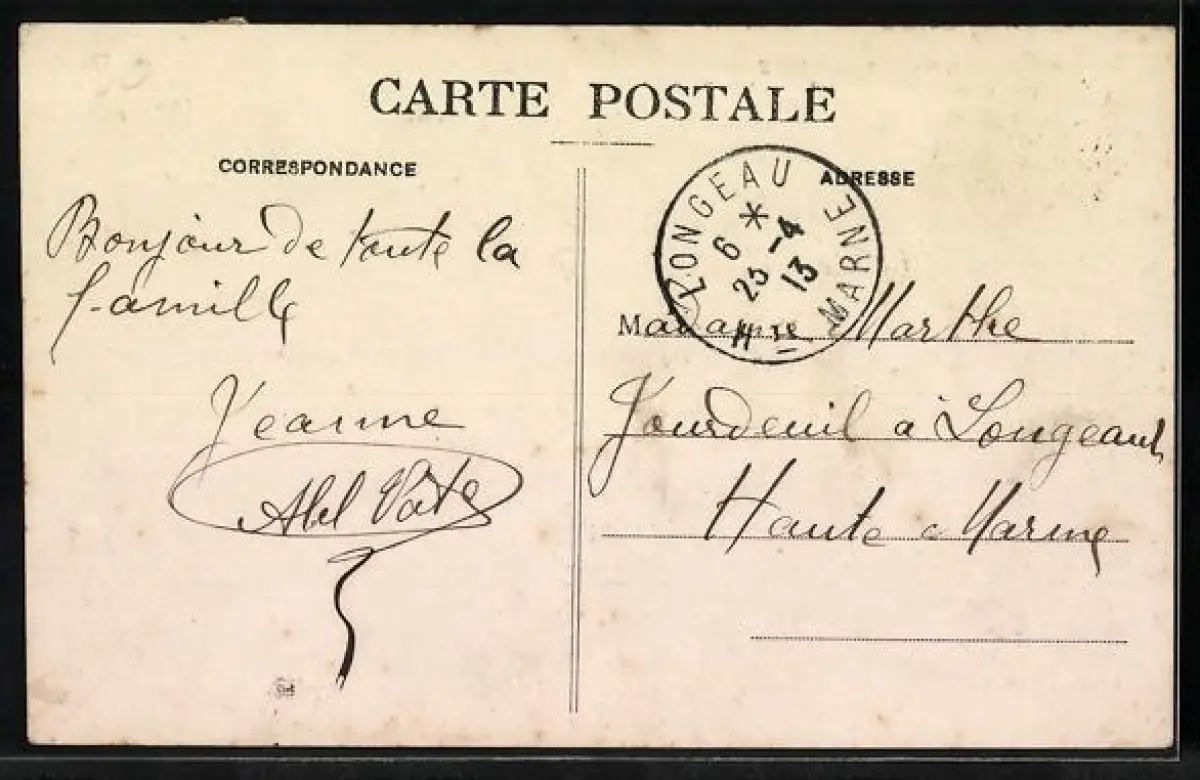 CARTE POSTALE
CORRESPONDANCE
Bonjour de toute la
famille
Jeanne
Abel
ADRESSE
LONGEAU
6 *
25 -4
13
Hte MARNE
Madame Marthe
Jourdeuil à Longeau
Haute Marne